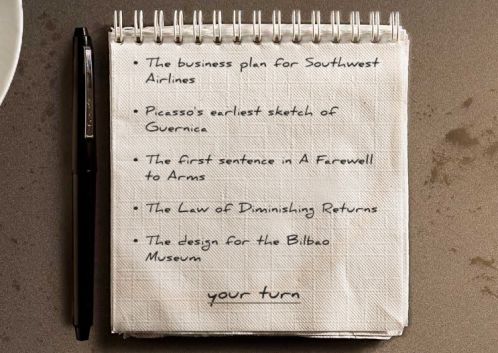 • The business plan for Southwest
Airlines
• Picasso's earliest sketch of
Guernica
• The first sentence in A Farewell
to Arms
• The Law of Diminishing Returns
• The design for the Bilbao
Museum
your turn